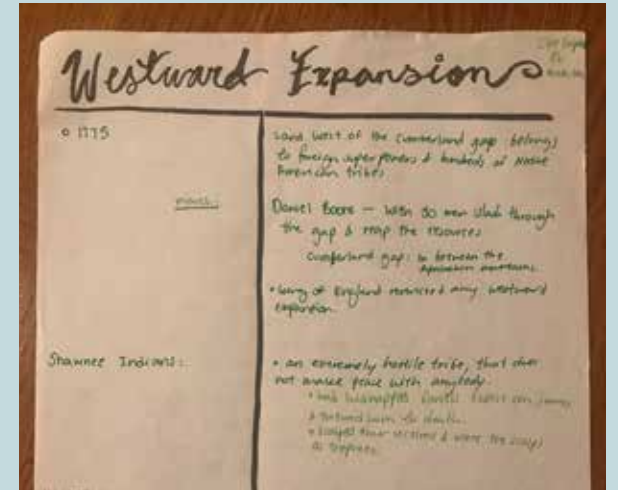 Westward Expansion
1775
Land west of the Cumberland gap belongs
to foreign super powers & hundreds of Native
American tribes
Daniel Boone — with 30 men slash through
the gap & map the resources
Cumberland gap: in between the
Appalachian mountains.
• King of England restricted any westward
expansion.
Shawnee Indians:
• an extremely hostile tribe, that does
not make peace with anybody.
• kidnapped Daniel Boone's son
& tortured him to death.
• scalped their victims & wore the scalps
as trophies.